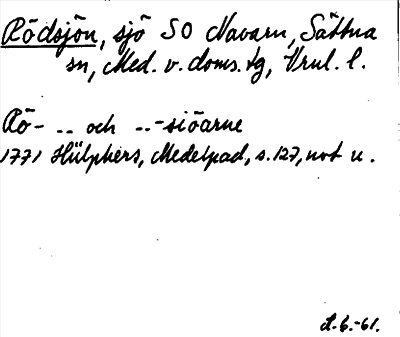 Rödsjön, sjö SO Navarn, Sättna
sn, Med. v. doms. tg, Vrnl. l.
Rö- .. och ..-siöarne
1771 Hülphers, Medelpad, s. 127, not u.
L. 6. -61.